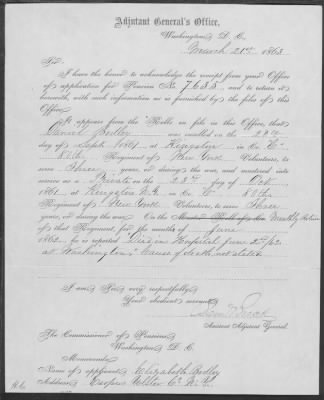 Adjutant General's Office,
Washington D. C.
March 21st 1863
Sir:
I have the honor to acknowledge the receipt from your Office
of application for Pension No. 7633, and to return it
herewith, with such information as is furnished by the files of this
Office.
It appears from the Rolls on file in this Office, that
Daniel was enrolled on the
day of Sept. 1861 at Kingston in Co.
80th Regiment of New York Volunteers, to
serve Three years, or during the war, and mustered into
service as a Private on the 22nd day of Oct.
1861 at Kingston N.Y. in Co. 80th
Regiment of New York Volunteers, to serve Three
years, or during the war. On the Muster Roll of Co. Monthly Return
of that Regiment, for the months of June
1862 he is reported "Died in Hospital June 2nd/62
at Washington," Cause of death not stated.
I am Sir, very respectfully
Your obedient servant,
Assistant Adjutant General.
The Commissioner of Pensions
Washington D. C.
Memoranda.
Name of applicant Elizabeth
Address, Esopus Ulster Co. N.Y.